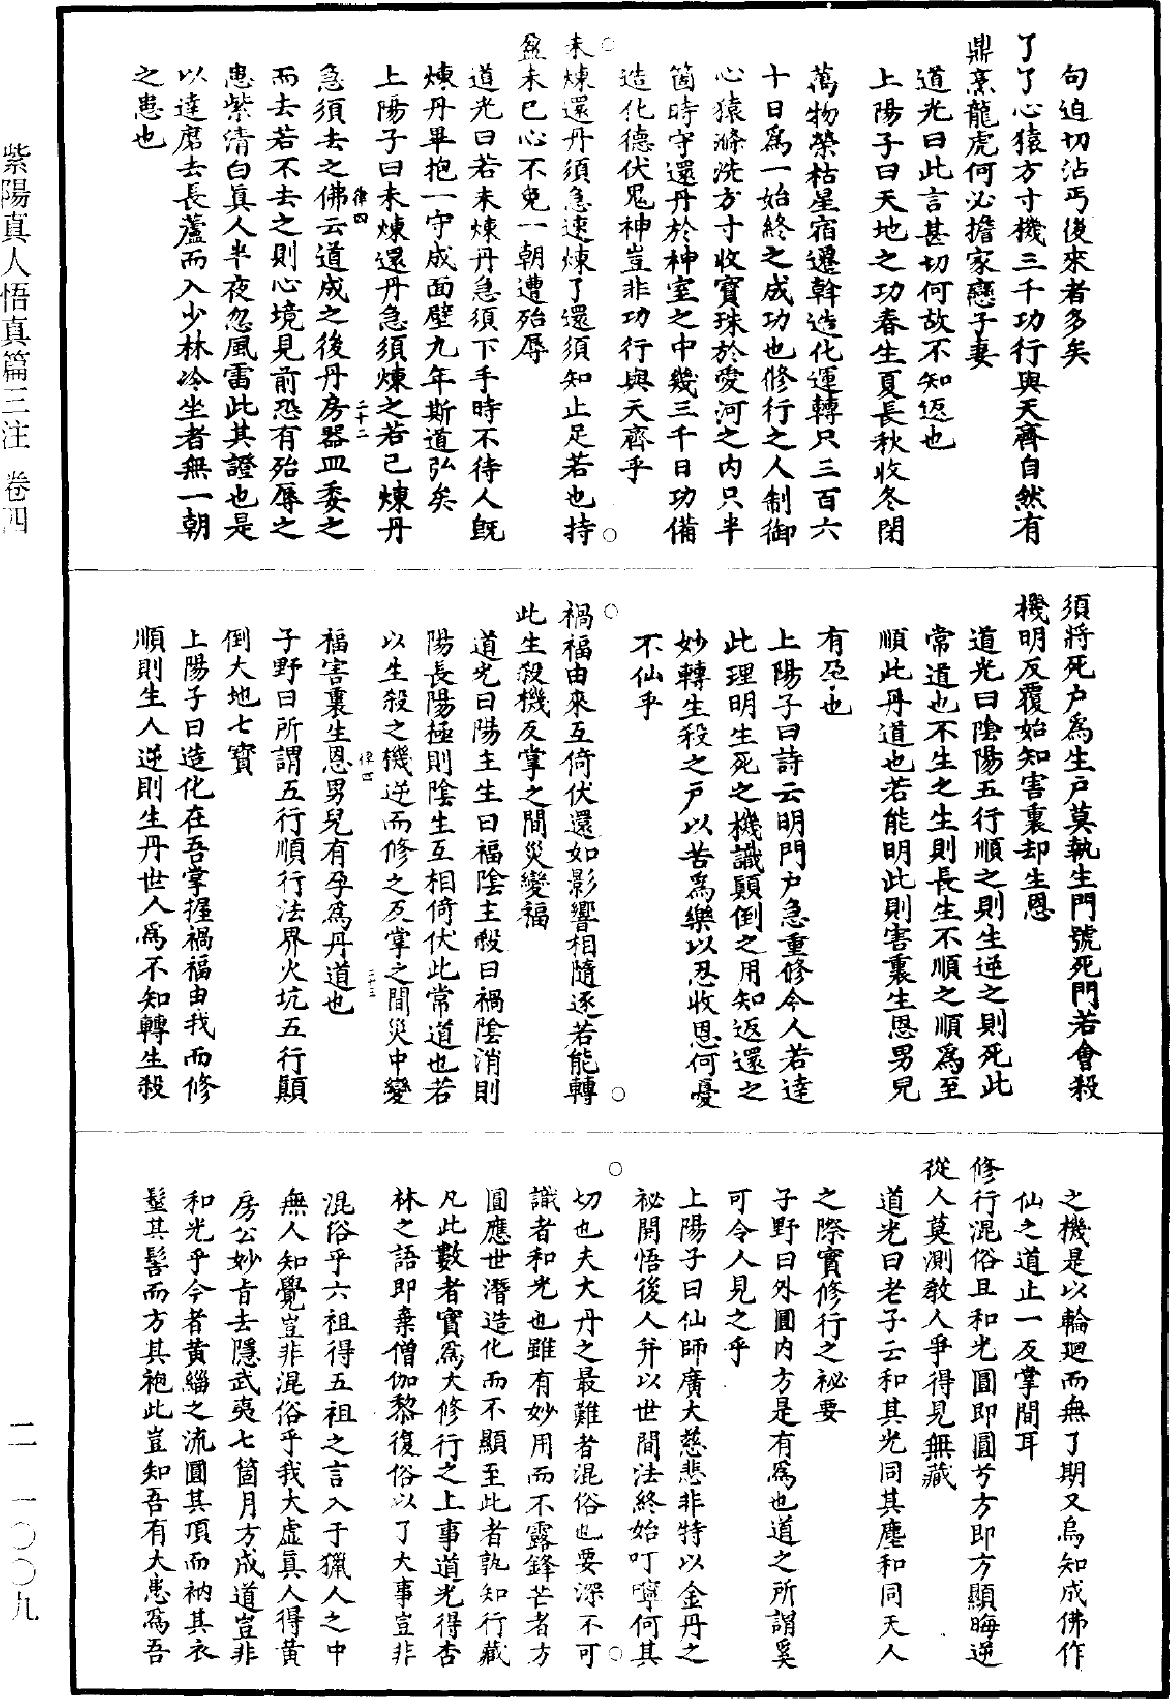 句迫切沾丐後來者多矣
了了心猿方寸機三千功行與天齊自然有
鼎烹龍虎何必擔家戀子妻
道光曰此言甚切何故不知返也
上陽子曰天地之功春生夏長秋收冬閉
萬物榮枯星宿遷斡造化運轉只三百六
十日為一始終之成功也修行之人制御
心猿滌洗方寸收寶珠於愛河之內只半
箇時守還丹於神室之中幾三千日功備
造化德伏鬼神豈非功行與天齊乎
○
未煉還丹須急速煉了還須知止足若也持
盈未已心不免一朝遭殆辱
○
道光曰若未煉丹急須下手時不待人既
煉丹畢抱一守成面壁九年斯道弘矣
上陽子曰未煉還丹急須煉之若已煉丹
律四 二十二
急須去之佛云道成之後丹房器皿委之
而去若不去之則心境見前恐有殆辱之
患紫清白真人半夜忽風雷此其證也是
以達磨去長蘆而入少林冷坐者無一朝
之患也
須將死户為生户莫執生門號死門若會殺
機明反覆始知害裏却生恩
道光曰陰陽五行順之則生逆之則死此
常道也不生之生則長生不順之順為至
順此丹道也若能明此則害裏生恩男兒
有孕也
上陽子曰詩云明門户急重修今人若達
此理明生死之機識顛倒之用知返還之
妙轉生殺之户以苦為樂以忍收恩何憂
不仙乎
○
禍福由來互倚伏還如影響相隨逐若能轉
此生殺機反掌之間災變福
○
道光曰陽主生曰福陰主殺曰禍陰消則
陽長陽極則陰生互相倚伏此常道也若
以生殺之機逆而修之反掌之間災中變
律四 二十三
福害裏生恩男兒有孕為丹道也
子野曰所謂五行順行法界火坑五行顛
倒大地七寶
上陽子曰造化在吾掌握禍福由我而修
順則生人逆則生丹世人為不知轉生殺
之機是以輪迴而無了期又烏知成佛作
仙之道止一反掌間耳
修行混俗且和光圓即圓兮方即方顯晦逆
從人莫測教人爭得見無藏
道光曰老子云和其光同其塵和同天人
之際實修行之祕要
子野曰外圓內方是有為也道之所謂奚
可令人見之乎
上陽子曰仙師廣大慈悲非特以金丹之
祕開悟後人并以世間法終始叮嚀何其
○
切也夫大丹之最難者混俗也要深不可
識者和光也雖有妙用而不露鋒芒者方
圓應世潛造化而不顯至此者孰知行藏
凡此數者實為大修行之上事道光得杏
林之語即棄僧伽黎復俗以了大事豈非
混俗乎六祖得五祖之言入于獵人之中
無人知覺豈非混俗乎我大虛真人得黃
房公妙旨去隱武夷七箇月方成道豈非
和光乎今者黃緇之流圓其頂而衲其衣
髽其髻而方其袍此豈知吾有大患為吾
○
紫陽真人悟真篇三注 卷四
二 一〇〇九